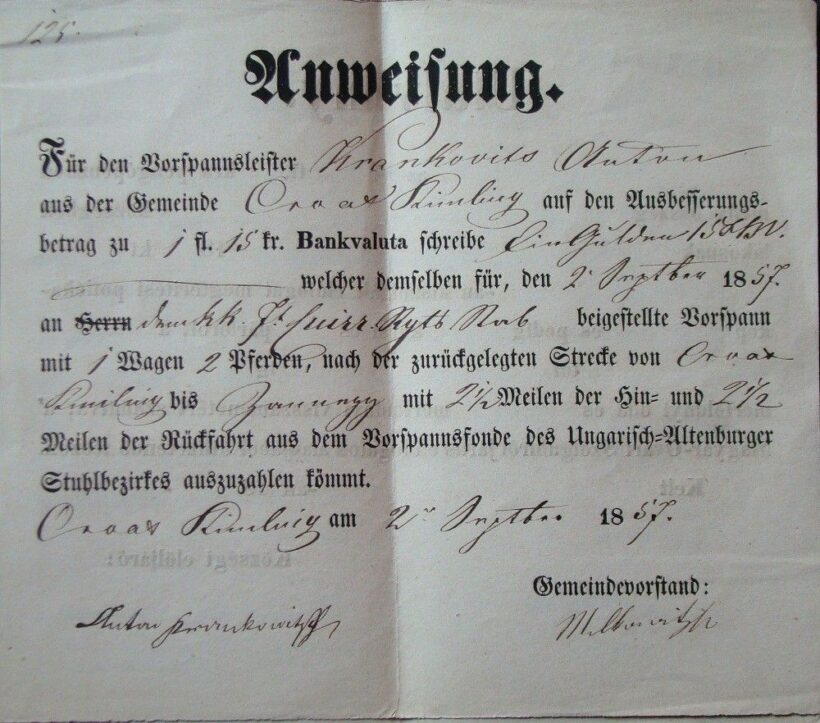 125.
Anweisung.
Für den Vorspannsleister Krankovits Anton
aus der Gemeinde Oroas Kimling auf den Ausbesserungs-
betrag zu 1 fl. 15 kr. Bankvaluta schreibe Ein Gulden 15 BV.
welcher demselben für, den 2 Septber 1857.
an Herrn dem kk Stab beigestellte Vorspann
mit 1 Wagen 2 Pferden, nach der zurückgelegten Strecke von Oroas
Kimling bis Zanegg mit 2 1/2 Meilen der Hin- und 2 1/2
Meilen der Rückfahrt aus dem Vorspannsfonde des Ungarisch-Altenburger
Stuhlbezirkes auszuzahlen kömmt.
Oroas Kimling am 2 Septber 1857.
Községi elöljáró:
Gemeindevorstand:
Anton Krankowitsch